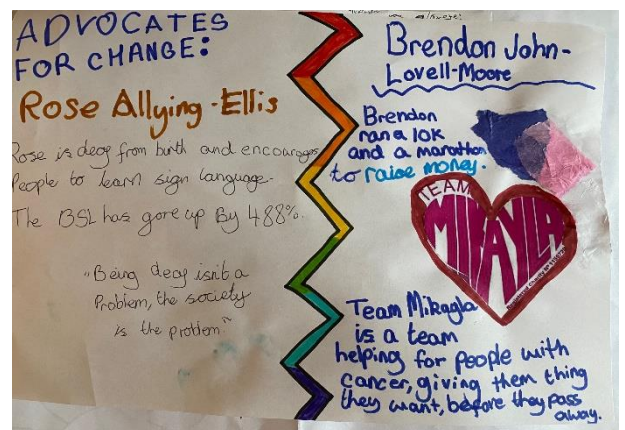 ADVOCATES
FOR CHANGE:
Rose Allying-Ellis
Rose is deaf from birth and encourages
People to learn sign language.
The BSL has gore up By 488%.
"Being deaf isn't a
Problem, the society
is the problem"
Brendon John-
Lovell-Moore
Brendon
ran a 10K
and a marathon
to raise money.
TEAM
MIKAYLA
Team Mikayla
is a team
helping for People with
cancer, giving them thing
they want, before they pass
away.